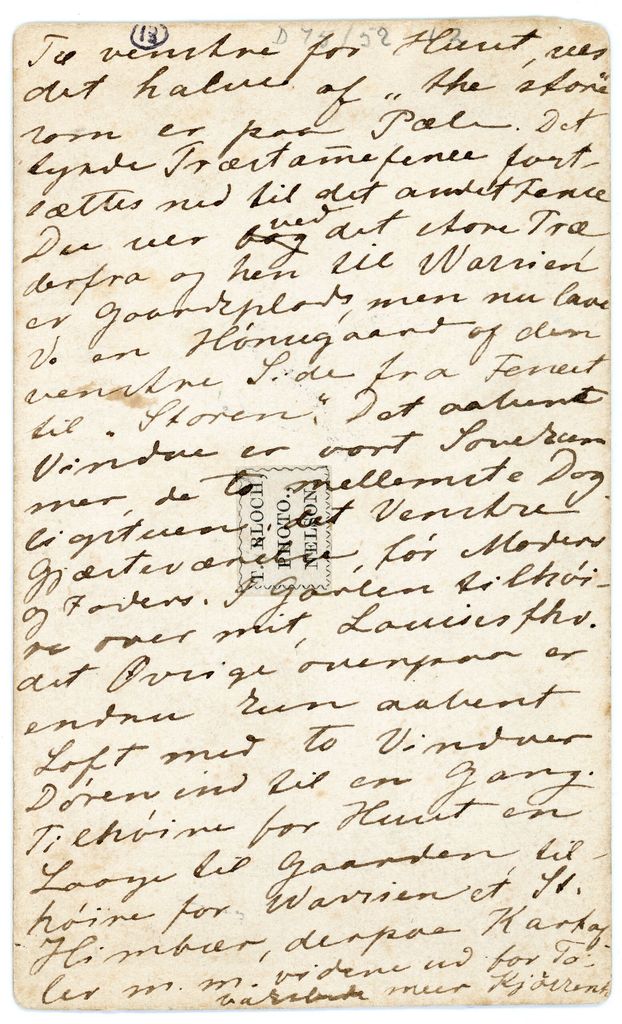 (13) D 73/52 43
Til venstre for Huset, sees
det halve af „the store"
som er paa Pæle. Det
tynde Træstammefence fort-
sættes ned til det andet Fence
Du ser bag ved det store Træ
derfra og hen til Warrien
er Gaardsplads, men nu lave
Vi en Hønsegaard af den
venstre Side fra Fencet
til „Storen". Det aabent
Vindue er vort Sove
mer, de to mellemste Dag
ligstuen, det Venstre
Gjæsteværelse, før Moders
og Faders. I Gavlen tilhøi-
re over mit,
det Øvrige ovenpaa er
endnu kun aabent
Loft med to Vinduer
Døren ind til en Gang.
Tilhøire for Huset en
Laage til Gaarden, til-
høire for Warrien et St.
Himbær, derpaa Kartof
ler m. m. videre ud for
meer
T. BLOCH,
PHOTO.,
NELSON.